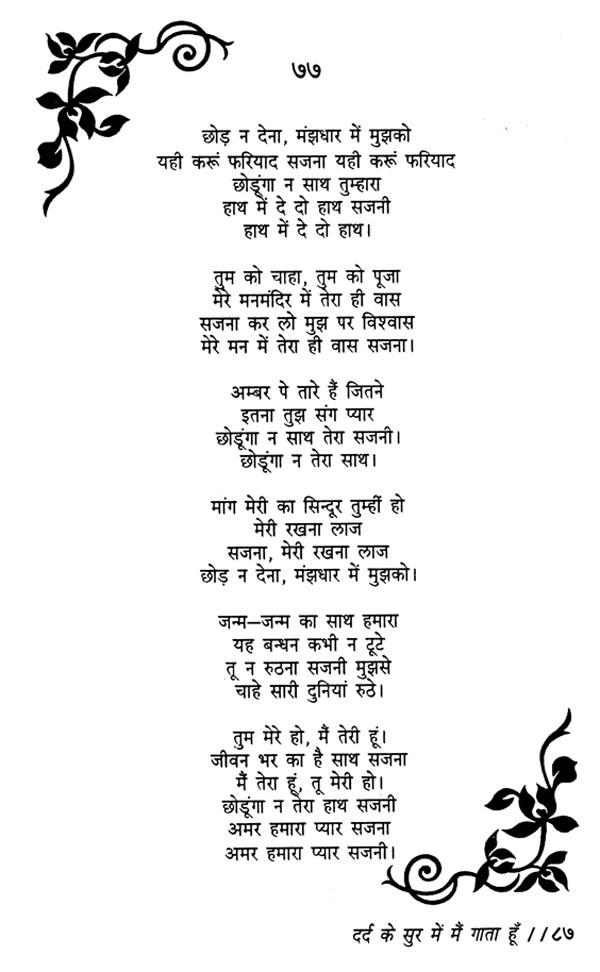 ७७
छोड़ न देना, मंझधार में मुझको
यही करूं फरियाद सजना यही करूं फरियाद
छोडूंगा न साथ तुम्हारा
हाथ में दे दो हाथ सजनी
हाथ में दे दो हाथ।
तुम को चाहा, तुम को पूजा
मेरे मनमंदिर में तेरा ही वास
सजना कर लो मुझ पर विश्वास
मेरे मन में तेरा ही वास सजना।
अम्बर पे तारे हैं जितने
इतना तुझ संग प्यार
छोडूंगा न साथ तेरा सजनी।
छोडूंगा न तेरा साथ।
मांग मेरी का सिन्दूर तुम्हीं हो
मेरी रखना लाज
सजना, मेरी रखना लाज
छोड़ न देना, मंझधार में मुझको।
जन्म–जन्म का साथ हमारा
यह बन्धन कभी न टूटे
तू न रुठना सजनी मुझसे
चाहे सारी दुनियां रुठे।
तुम मेरे हो, मैं तेरी हूं।
जीवन भर का है साथ सजना
मैं तेरा हूं, तू मेरी हो।
छोडूंगा न तेरा हाथ सजनी
अमर हमारा प्यार सजना
अमर हमारा प्यार सजनी।
दर्द के सुर में मैं गाता हूँ //८७